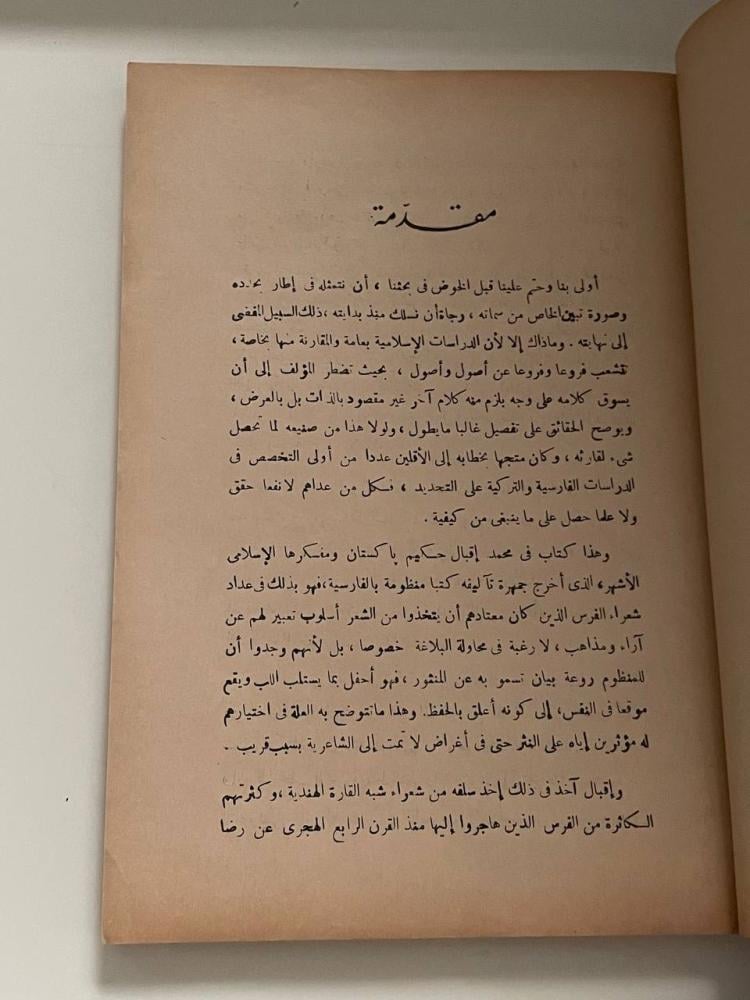 مقدّمة
أولى بنا وحتم علينا قبل الخوض فى بحثنا ، أن نتمثله فى إطار يحدده
وصورة تبين الخاص من سماته ، رجاة أن نسلك منذ بدايته ، ذلك السبيل المفضى
إلى نهايته . وماذاك إلا لأن الدراسات الإسلامية بعامة والمقارنة منها بخاصة ،
تتشعب فروعا وفروعا عن أصول وأصول ، بحيث تضطر المؤلف إلى أن
يسوق كلامه على وجه يلزم منه كلام آخر غير مقصود بالذات بل بالعرض ،
ويوضح الحقائق على تفصيل غالبا مايطول ، ولولا هذا من صنيعه لما تحصل
شىء لقارئه ، وكان متجها بخطابه إلى الأقلين عددا من أولى التخصص فى
الدراسات الفارسية والتركية على التحديد ، فسكل من عداهم لا نفعا حقق
ولا علما حصل على ما ينبغى من كيفية .
وهذا كتاب فى محمد إقبال حسكيم پاكستان ومفسكرها الإسلامى
الأشهر، الذى أخرج جمهرة تآليفه كتبا منظومة بالفارسية، فهو بذلك فى عداد
شعراء الفرس الذين كان معتادهم أن يتخذوا من الشعر أسلوب تعبير لهم عن
آراء ومذاهب ، لا رغبة فى محاولة البلاغة خصوصا ، بل لأنهم وجدوا أن
للمنظوم روعة بيان تسمو به عن المنثور ، فهو أحفل بما يستلب اللب ويقع
موقعا فى النفس، إلى كونه أعلق بالحفظ. وهذا ماتتوضح به العلة فى اختيارهم
له مؤثرين إياه على النثر حتى فى أغراض لا تمت إلى الشاعرية بسبب قريب .
وإقبال آخذ فى ذلك إخذ سلفه من شعراء شبه القارة الهندية ، وكثرتهم
السكاثرة من الفرس الذين هاجروا إليها منذ القرن الرابع الهجرى عن رضا